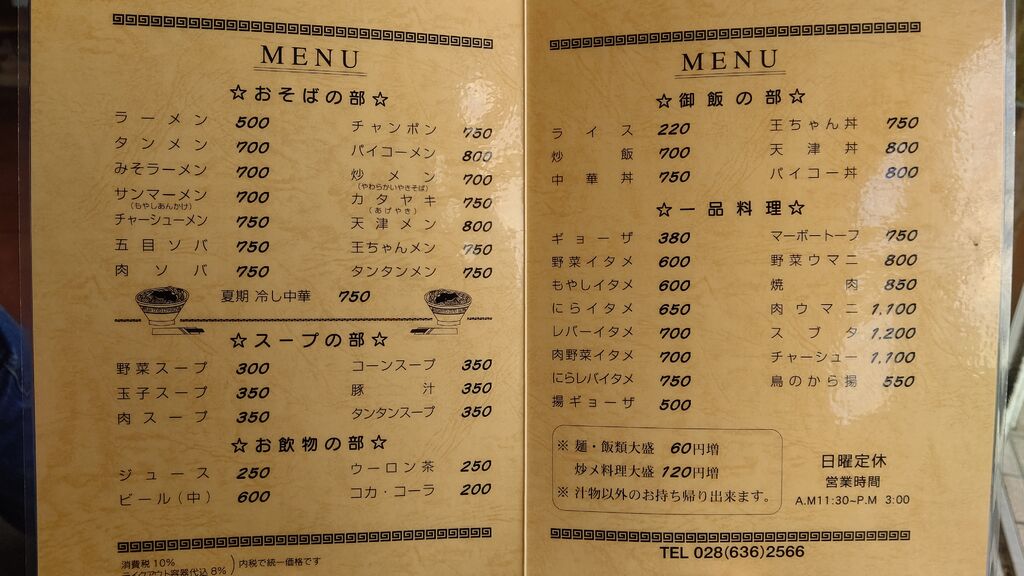 MENU
☆おそばの部☆
ラーメン 500
タンメン 700
みそラーメン 700
サンマーメン 700
(もやしあんかけ)
チャーシューメン 750
五目ソバ 750
肉ソバ 750
チャンポン 750
パイコーメン 800
炒メン 700
(やわらかいやきそば)
カタヤキ 750
(あげやき)
天津メン 800
王ちゃんメン 750
タンタンメン 750
夏期 冷し中華 750
☆スープの部☆
野菜スープ 300
玉子スープ 350
肉スープ 350
コーンスープ 350
豚汁 350
タンタンスープ 350
☆お飲物の部☆
ジュース 250
ビール(中) 600
ウーロン茶 250
コカ・コーラ 200
消費税10%
テイクアウト容器代込8%
内税で統一価格です
MENU
☆御飯の部☆
ライス 220
炒飯 700
中華丼 750
王ちゃん丼 750
天津丼 800
パイコー丼 800
☆一品料理☆
ギョーザ 380
野菜イタメ 600
もやしイタメ 600
にらイタメ 650
レバーイタメ 700
肉野菜イタメ 700
にらレバイタメ 750
揚ギョーザ 500
マーボートーフ 750
野菜ウマニ 800
焼肉 850
肉ウマニ 1.100
スブタ 1.200
チャーシュー 1.100
鳥のから揚 550
※ 麺・飯類大盛 60円増
炒メ料理大盛 120円増
※ 汁物以外のお持ち帰り出来ます。
日曜定休
営業時間
A.M11:30~P.M 3:00
TEL 028(636)2566